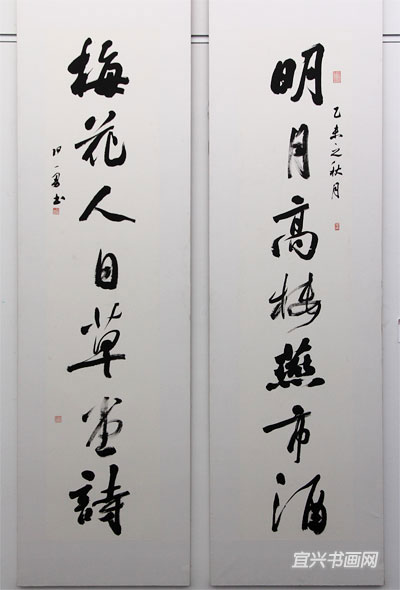 明月高楼燕市酒
乙未之秋月
梅花人日草堂詩
一勇书
宜兴书画网